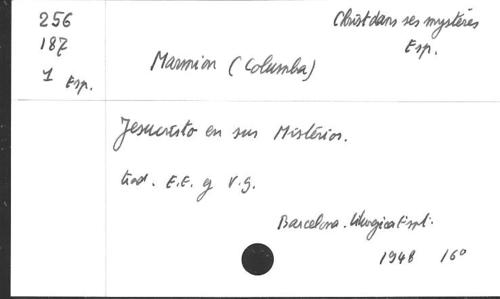 256
187
1 Esp.
Christ dans ses mystères
Esp.
Marmion (Columba)
Jesucristo en sus Mistérios.
trad. E.E. y V.G.
Barcelona. Liturgica Espl.
1948 16°